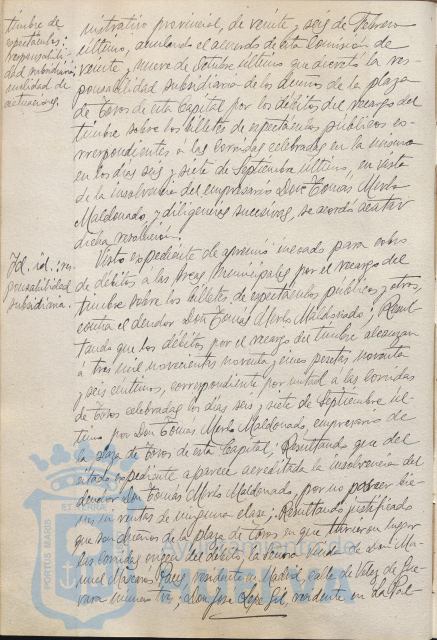 timbre de
espectáculos:
responsabili-
dad subsidiaria,
nulidad de
actuaciones.
ministrativo provincial, de veinte y seis de Febrero
último, anulando el acuerdo de esta Comisión de
veinte y nueve de Octubre último que decretó la res-
ponsabilidad subsidiaria de los dueños de la plaza
de Toros de esta Capital por los débitos del recargo del
timbre sobre los billetes de espectáculos públicos co-
rrespondientes á las corridas celebradas en la misma
en los días seis y siete de Septiembre último, en vista
de la insolvencia del empresario Don Tomás Merlo
Maldonado, y diligencias sucesivas, se acordó acatar
dicha resolución.
Id. id.: res-
ponsabilidad
subsidiaria.
Visto expediente de apremio incoado para cobro
de débitos á las arcas municipales por el recargo del
timbre sobre los billetes de espectáculos públicos y otros,
contra el deudor Don Tomás Merlo Maldonado; Resul-
tando que los débitos por el recargo del timbre alcanzan
á tres mil novecientas noventa y cinco pesetas noventa
y seis céntimos, correspondiente por mitad a las corridas
de toros celebradas los días seis y siete de Septiembre úl-
timo por Don Tomás Merlo Maldonado, empresario de
la plaza de toros de esta Capital; Resultando que del
citado expediente aparece acreditada la insolvencia del
deudor Don Tomás Merlo Maldonado, por no poseer bie-
nes ni rentas de ninguna clase; Resultando justificado
que son dueños de la plaza de toros en que tuvieron lugar
las corridas origen del débito, la Señora Viuda de Don Ma-
nuel
residente en Madrid, calle de Velez de Gue-
vara número tres; Don José Lope Gil, residente en La Pal-
PORTUS MARIS
ET TERRÆ
Ayuntamiento de